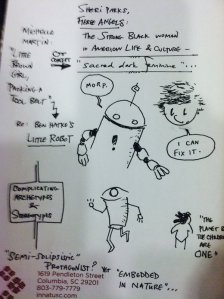 SHERI PARKS,
FIERCE ANGELS:
THE STRONG BLACK WOMAN
IN AMERICAN LIFE & CULTURE —
"sacred dark feminine"...
MICHELLE
MARTIN:
"LITTLE
BROWN
GIRL,
PACKING A
TOOL BELT"
RE: BEN HATKE'S
LITTLE ROBOT
MORP.
I CAN
FIX IT.
COMPLICATING
ARCHETYPES
&
STEREOTYPES
"THE
PLANET &
THE CHILDREN
ARE
ONE"
"SEMI-SOLIPSISTIC"
PROTAGONIST?
"EMBEDDED
IN NATURE"...
1619 Pendleton Street
Columbia, SC 29201
803-779-7779
innatusc.com